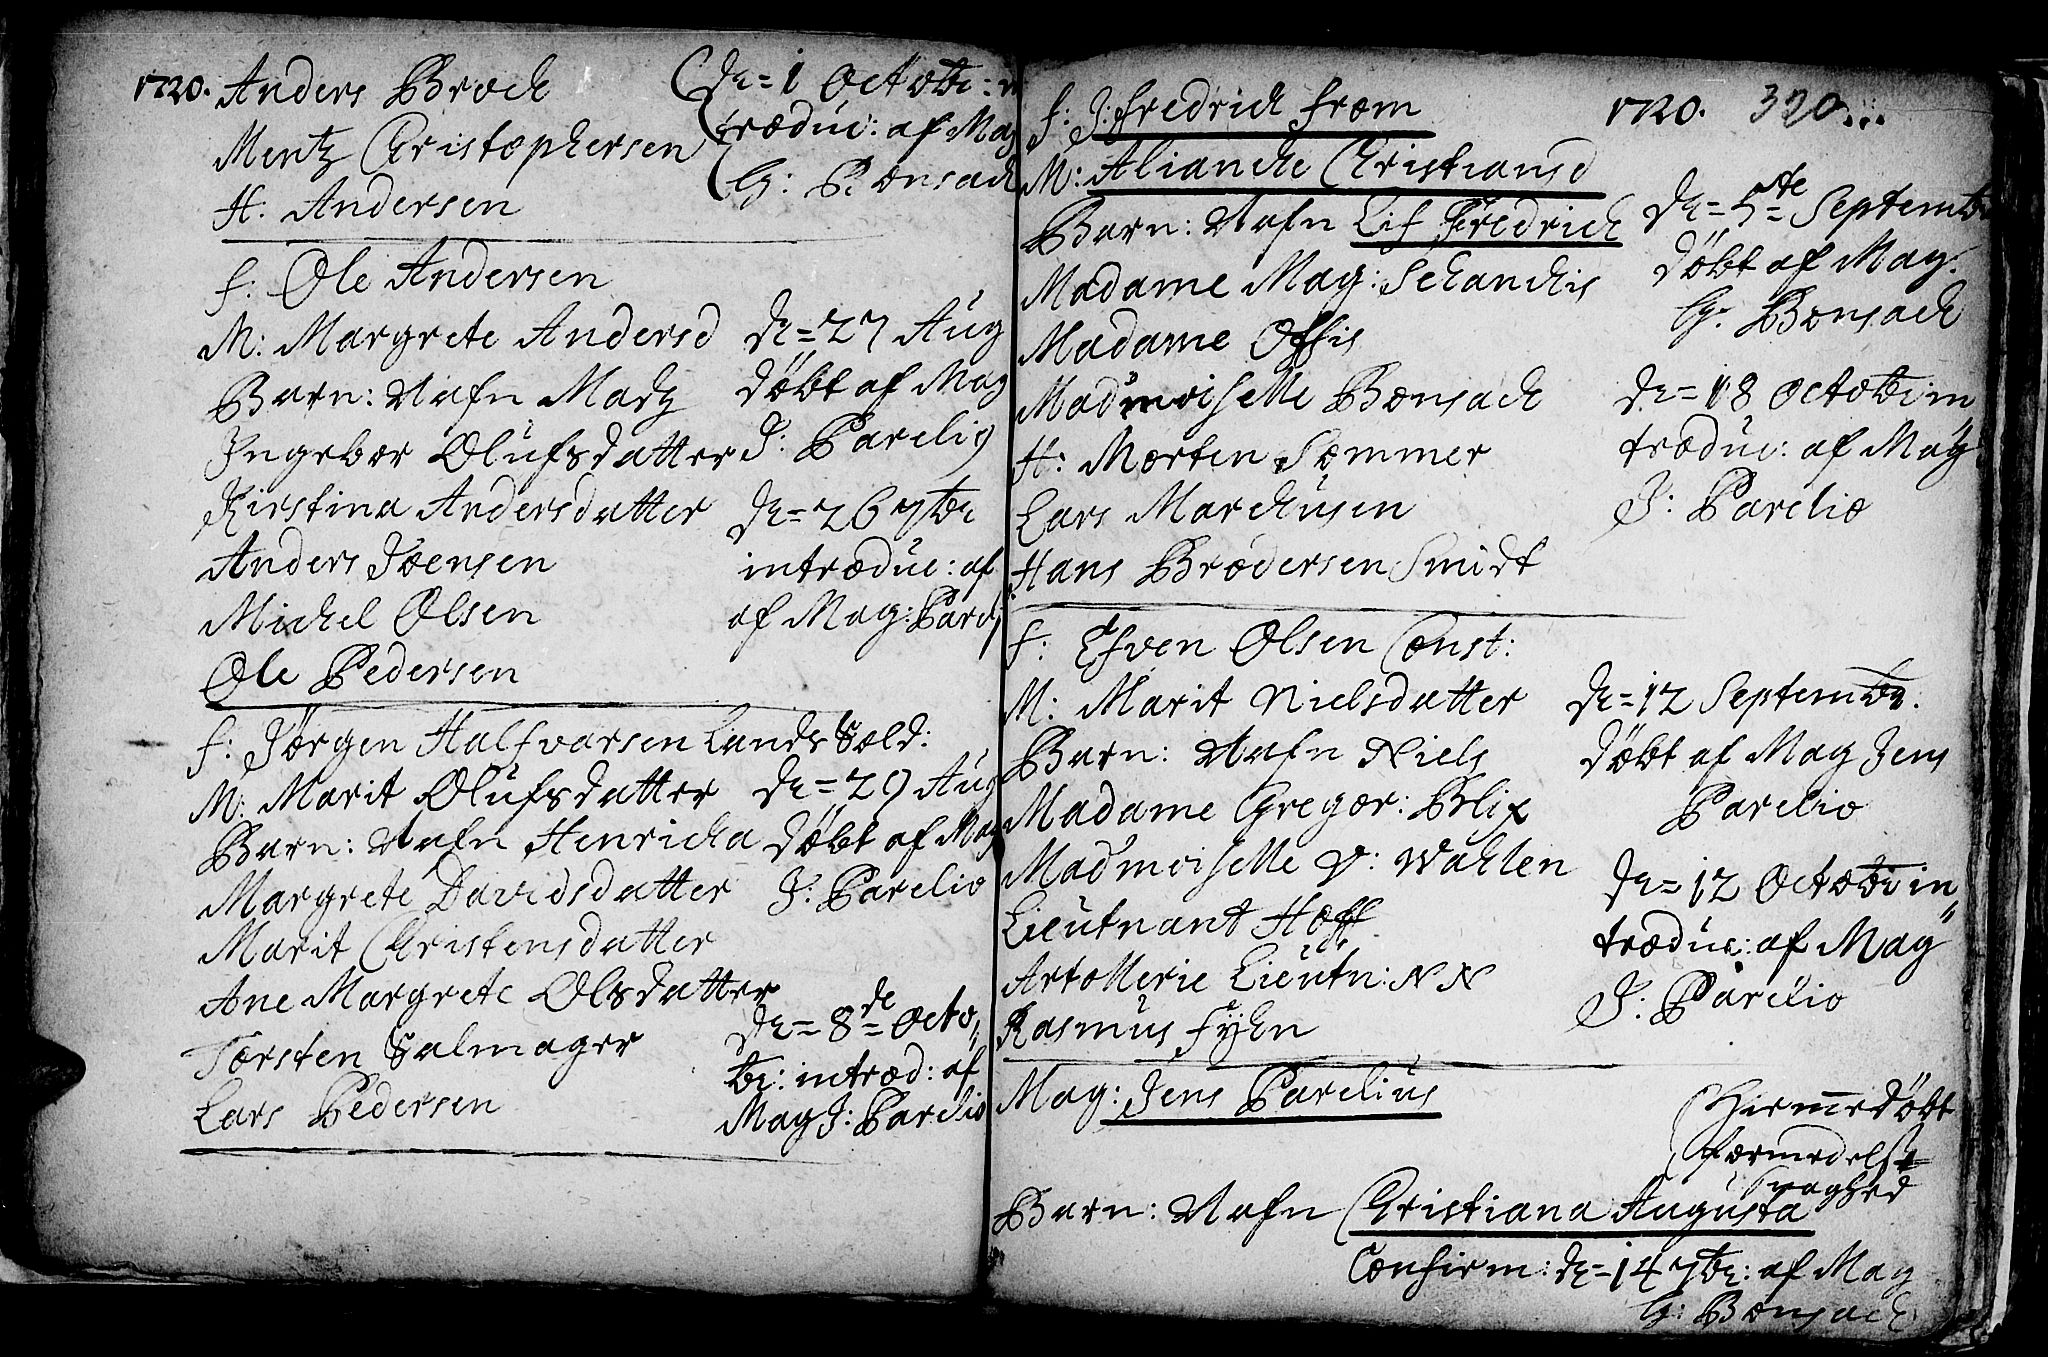 1720. Anders Brock
Mentz Christophersen
H. Andersen
(de = 1 Octobr: in
troduc: af Mag
G: Bonsach
f: Ole Andersen
M: Margrete Andersd
Barn: Nafn Madz
Ingebor Olufsdatter
Kirstina Andersdatter
Anders Joensen
Michel Olsen
Ole Pedersen
de = 27 Aug
døbt af Mag
J: Parelio
de = 26 7br
introduc: af
af Mag: Pareli
f: Jørgen Halfvarsen Lands Sold:
M: Marit Olufsdatter
Barn: Nafn Henricka
Margrete Davidsdatter
Marit Christensdatter
Ane Margrete Olsdatter
Torsten Salmager
Lars Pedersen
de = 29 Aug
døbt af Mag
J: Parelio
de = 8de Octo,
br: introd: af
Mag J: Parelio
1720. 320
f: J: Fredrich From
M: Alianche Christiansd
Barn: Nafn Lif Fredrich
Madame Mag: Schanchis
Madame Offis
Madmoiselle Bonsach
H: Morten Sommer
Lars Marchusen
Hans Brodersen Smidt
de = 5te Septembr
døbt af Mag:
G: Bonsach
de = 18 Octobr in
troduc: af Mag
J: Parelio
f: Esven Olsen Const:
M: Marit Nielsdatter
Barn: Nafn Niels
Madame Gregor: Blix
Madmoiselle V: Wahlen
Lieutnant Hoff
Artollerie Lieutn: N N
Rasmus Fyhn
de = 12 Septembr.
døbt af Mag Jens
Parelio
de = 12 Octobr in,,
troduc: af Mag
J: Parelio
Mag: Jens Parelius
Hiemmedøbt
formedelst
svaghed
Barn: Nafn Christiana Augusta
Confirm: de = 14 7br: af Mag
G: Bonsach